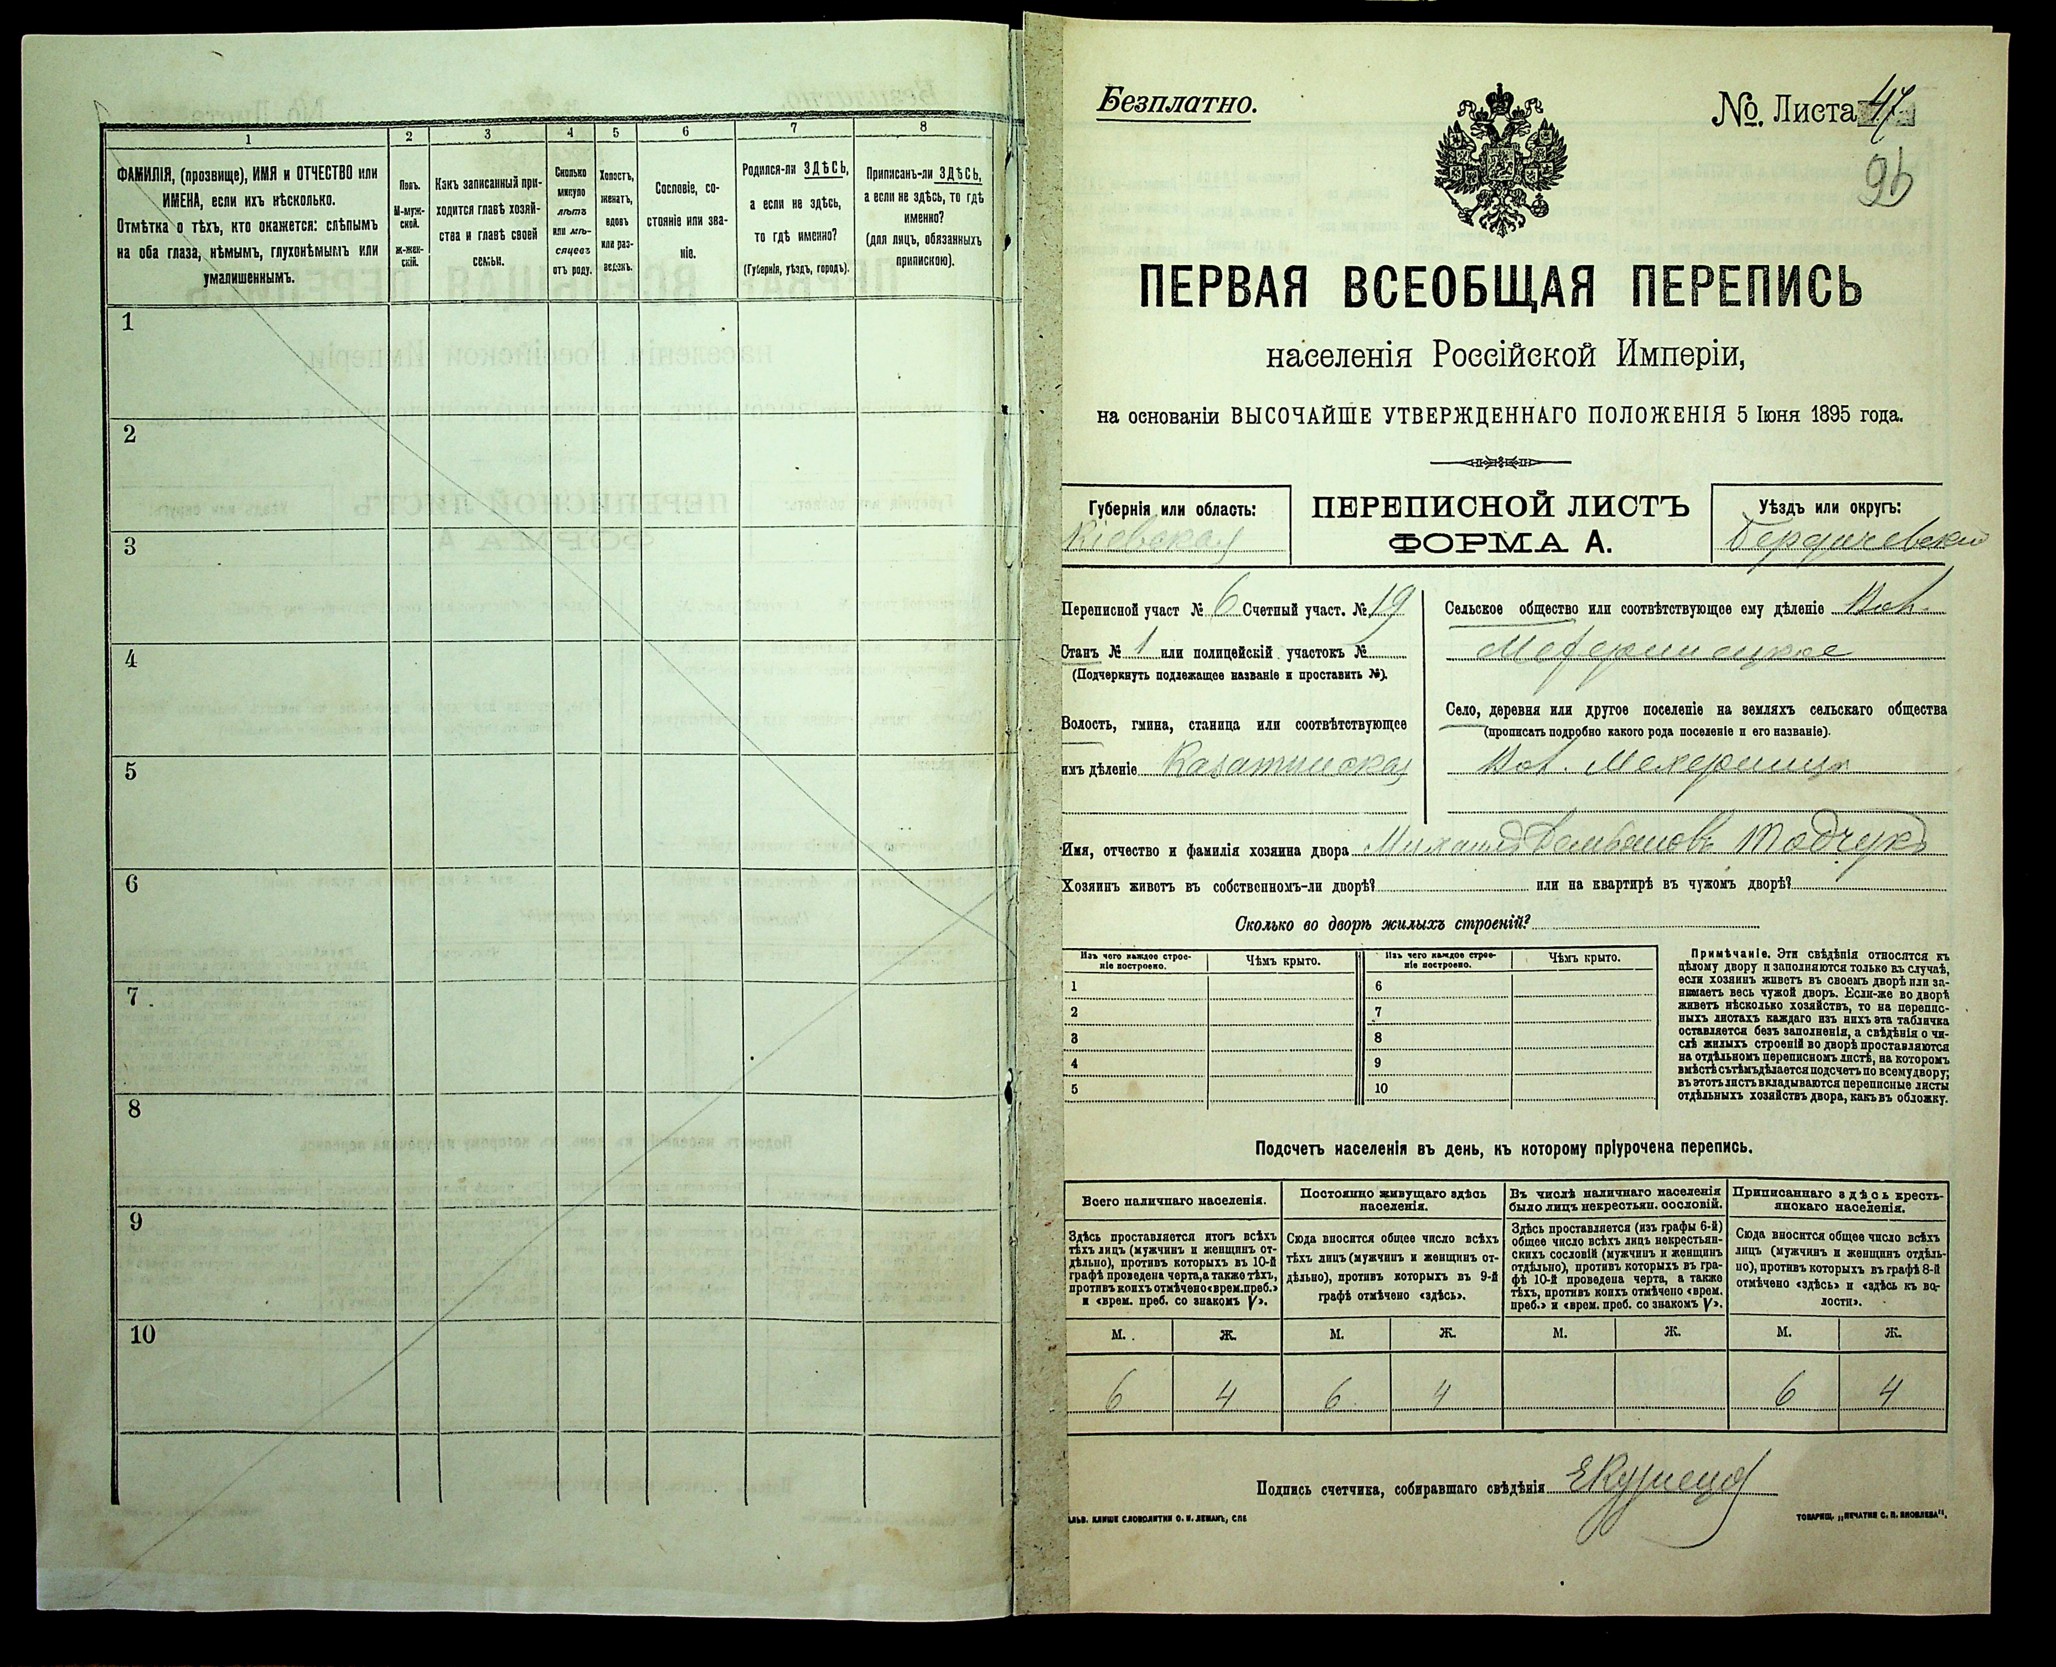 1
2
3
4
5
6
7
8
ФАМИЛІЯ, (прозвище), ИМЯ и ОТЧЕСТВО или
ИМЕНА, если ихъ нѣсколько.
Отмѣтка о тѣхъ, кто окажется: слѣпымъ
на оба глаза, нѣмымъ, глухонѣмымъ или
умалишеннымъ.
Полъ.
М-муж-
ской.
ж-жен-
скій.
Какъ записанный при-
ходится главѣ хозяй-
ства и главѣ своей
семьи.
Сколько
минуло
лѣтъ
или мѣ-
сяцевъ
отъ роду.
Холостъ,
женатъ,
вдовъ
или раз-
веденъ.
Сословіе, со-
стояніе или зва-
ніе.
Родился-ли ЗДѢСЬ,
а если не здѣсь,
то гдѣ именно?
(Губернія, уѣздъ, городъ).
Приписанъ-ли ЗДѢСЬ,
а если не здѣсь, то гдѣ
именно?
(для лицъ, обязанныхъ
припискою).
1
2
3
4
5
6
7
8
9
10
Безплатно.
№. Листа 47
96
ПЕРВАЯ ВСЕОБЩАЯ ПЕРЕПИСЬ
населенія Россійской Имперіи,
на основаніи ВЫСОЧАЙШЕ УТВЕРЖДЕННАГО ПОЛОЖЕНІЯ 5 Іюня 1895 года.
Губернія или область:
Кіевская
ПЕРЕПИСНОЙ ЛИСТЪ
ФОРМА А.
Уѣздъ или округъ:
Бердичевскій
Переписной участ № 6 Счетный участ. № 19
Станъ № 1 или полицейскій участокъ №
(Подчеркнуть подлежащее названіе и проставить №).
Волость, гмина, станица или соотвѣтствующее
имъ дѣленіе Казатинская
Сельское общество или соотвѣтствующее ему дѣленіе
Село, деревня или другое поселеніе на земляхъ сельскаго общества
(прописать подробно какого рода поселеніе и его названіе).
Имя, отчество и фамилія хозяина двора Михаилъ Демьяновъ Тодчукъ
Хозяинъ живетъ въ собственномъ-ли дворѣ? или на квартирѣ въ чужомъ дворѣ?
Сколько во дворѣ жилыхъ строеній?
Изъ чего каждое строе-
ніе построено.
Чѣмъ крыто.
Изъ чего каждое строе-
ніе построено.
Чѣмъ крыто.
1
6
2
7
3
8
4
9
5
10
Примѣчаніе. Эти свѣдѣнія относятся къ
цѣлому двору и заполняются только въ случаѣ,
если хозяинъ живетъ въ своемъ дворѣ или за-
нимаетъ весь чужой дворъ. Если-же во дворѣ
живетъ нѣсколько хозяйствъ, то на перепис-
ныхъ листахъ каждаго изъ нихъ эта табличка
оставляется безъ заполненія, а свѣдѣнія о чи-
слѣ жилыхъ строеній во дворѣ проставляются
на отдѣльномъ переписномъ листѣ, на которомъ
вмѣстѣ съ тѣмъ дѣлается подсчетъ по всему двору;
въ этотъ листъ вкладываются переписные листы
отдѣльныхъ хозяйствъ двора, какъ въ обложку.
Подсчетъ населенія въ день, къ которому пріурочена перепись.
Всего наличнаго населенія.
Постоянно живущаго здѣсь
населенія.
Въ числѣ наличнаго населенія
было лицъ некрестьян. сословій.
Приписаннаго здѣсь кресть-
янскаго населенія.
Здѣсь проставляется итогъ всѣхъ
тѣхъ лицъ (мужчинъ и женщинъ от-
дѣльно), противъ которыхъ въ 10-й
графѣ проведена черта, а также тѣхъ,
противъ коихъ отмѣчено «врем. преб.»
и «врем. преб. со знакомъ V».
Сюда вносится общее число всѣхъ
тѣхъ лицъ (мужчинъ и женщинъ от-
дѣльно), противъ которыхъ въ 9-й
графѣ отмѣчено «здѣсь».
Здѣсь проставляется (изъ графы 6-й)
общее число всѣхъ лицъ некрестьян-
скихъ сословій (мужчинъ и женщинъ
отдѣльно), противъ которыхъ въ гра-
фѣ 10-й проведена черта, а также
тѣхъ, противъ коихъ отмѣчено «врем.
преб.» и «врем. преб. со знакомъ V».
Сюда вносится общее число всѣхъ
лицъ (мужчинъ и женщинъ отдѣль-
но), противъ которыхъ въ графѣ 8-й
отмѣчено «здѣсь» и «здѣсь къ во-
лости».
М. Ж. М. Ж. М. Ж. М. Ж.
6 4 6 4 6 4
Подпись счетчика, собиравшаго свѣдѣнія ЕКузнецов
АЛЬВ. КЛИШЕ СЛОВОЛИТНИ О. И. ЛЕМАНЪ, СПБ
ТОВАРИЩ. „ПЕЧАТНЯ С. П. ЯКОВЛЕВА".